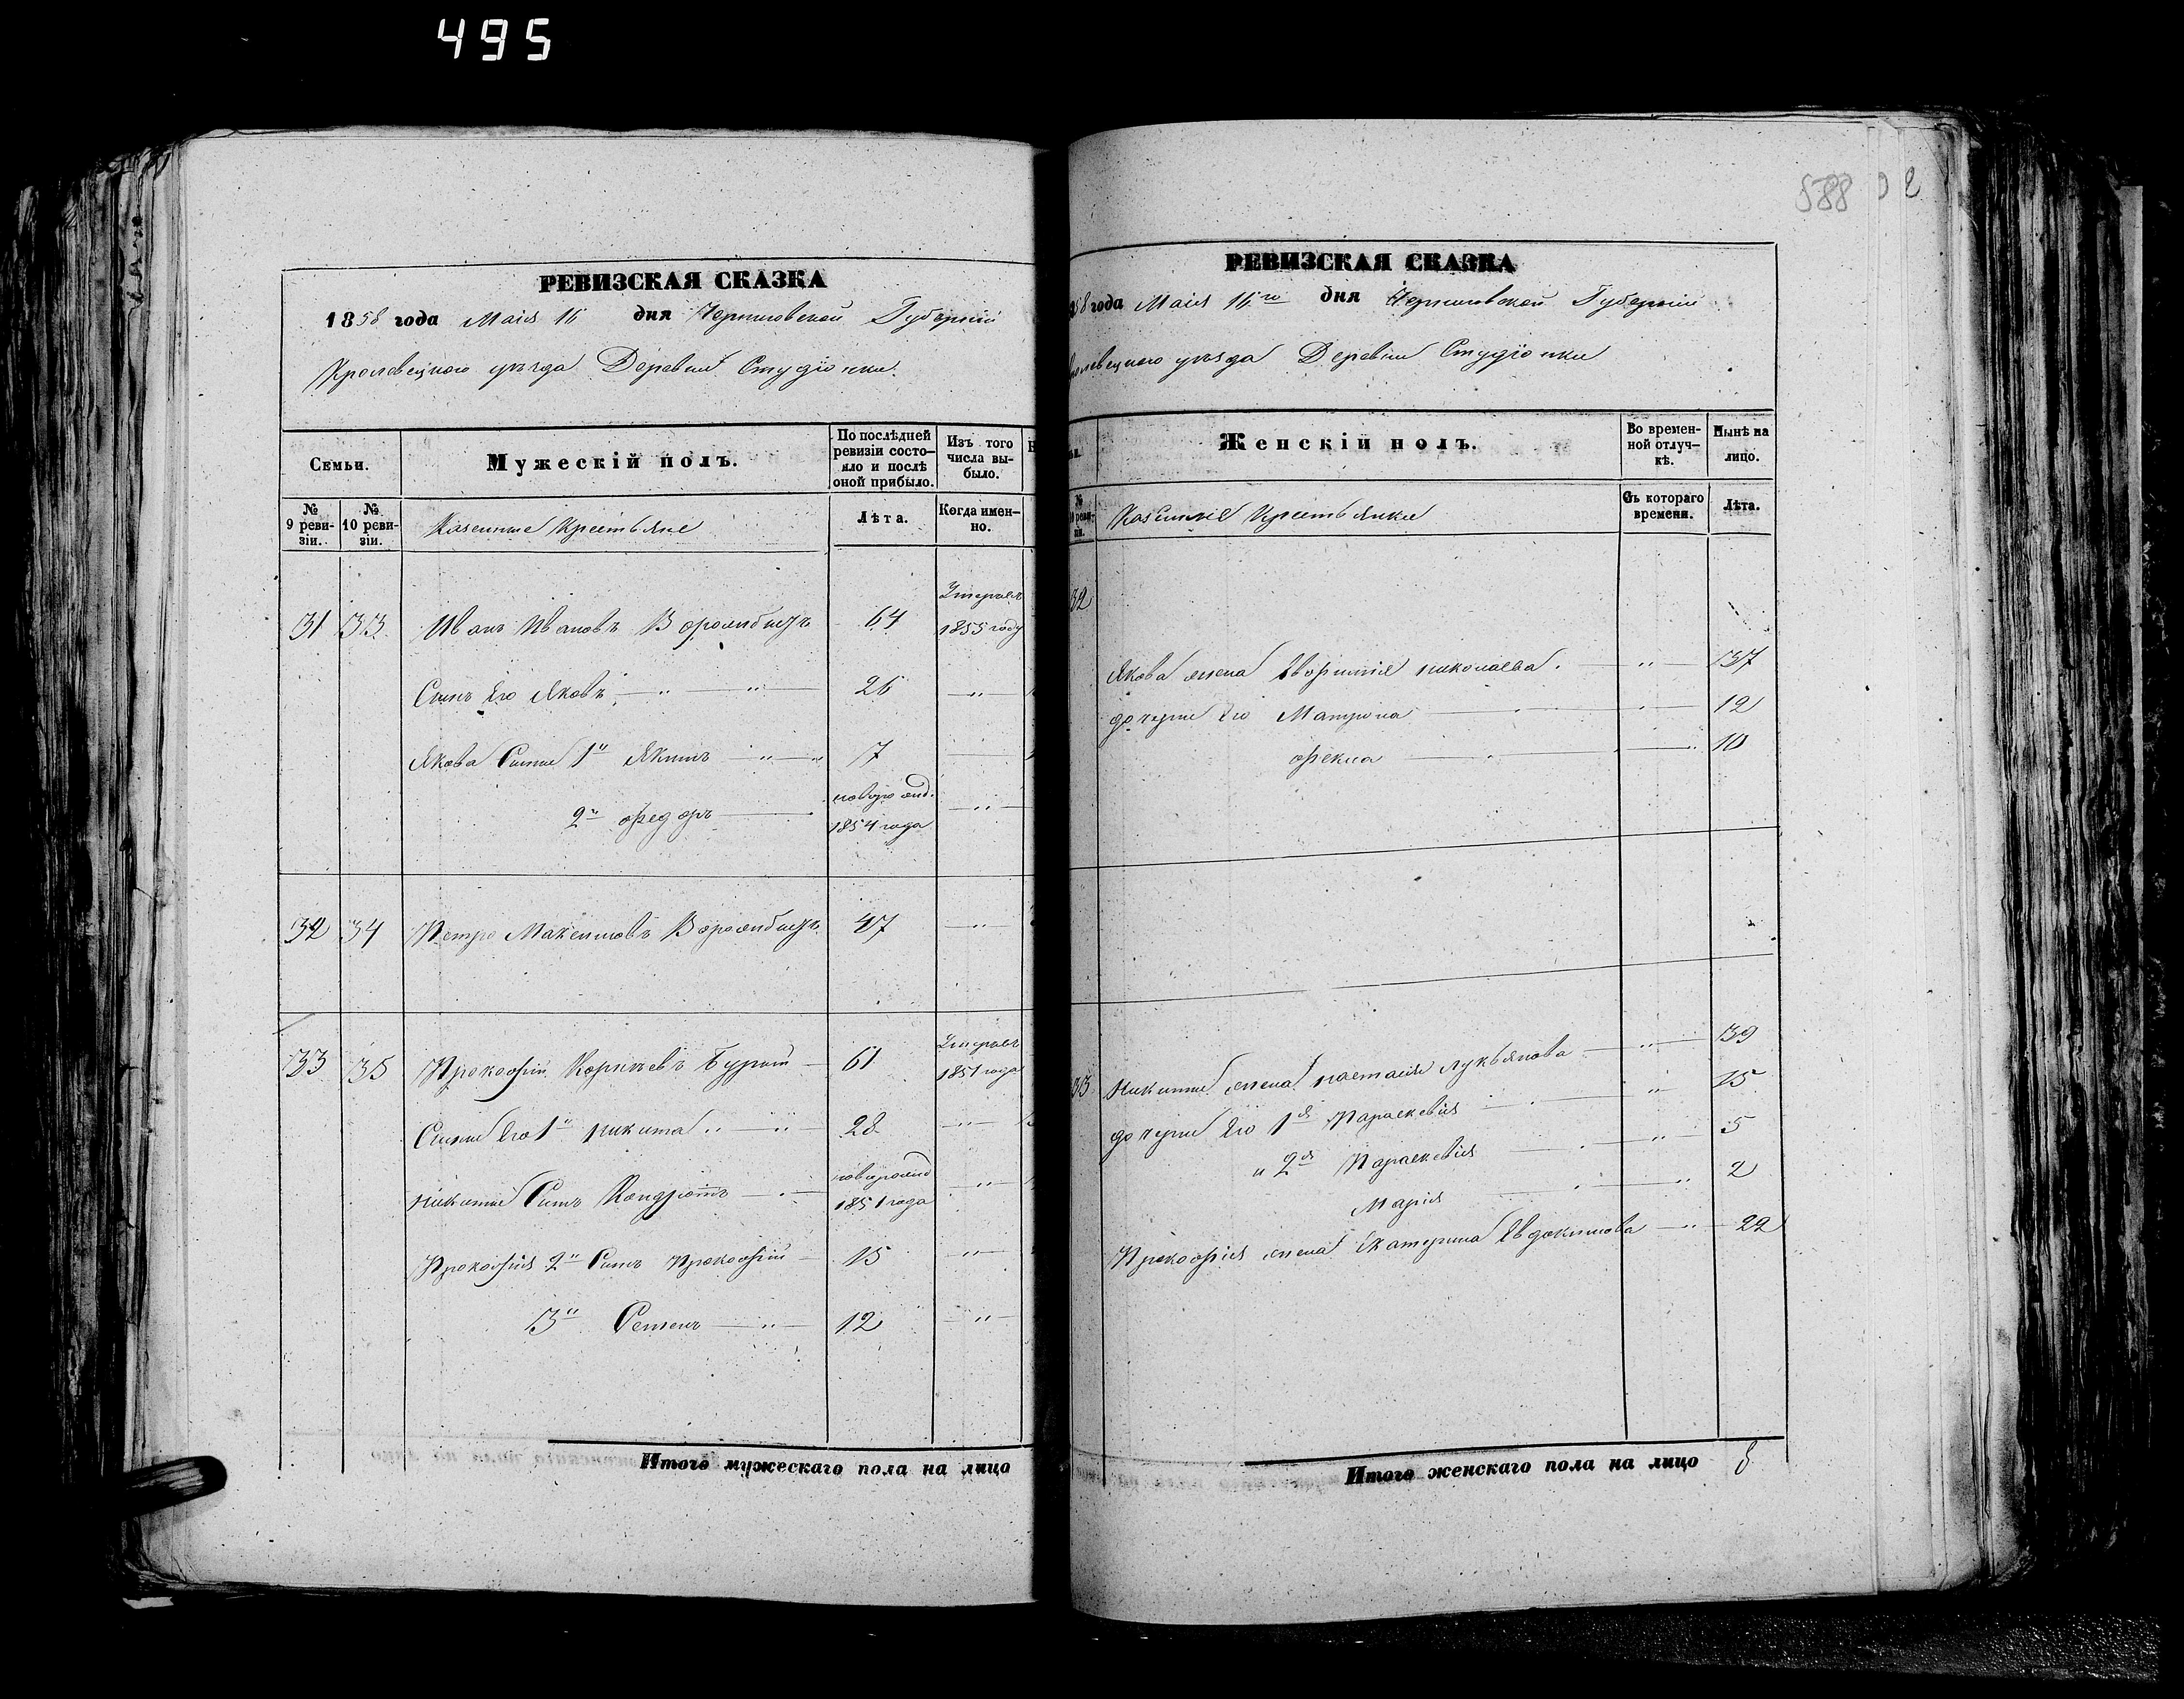 495
РЕВИЗСКАЯ СКАЗКА
1858 года Маія 15 дня Черниговской Губерніи
Кролевецкого уѣзда Деревни Студіонки
Семьи.
Мужескій полъ.
По послѣдней ревизіи состо-
яло и послѣ
оной прибыло.
Изъ того
числа вы-
было.
№ 9 реви-
зіи.
№ 10 реви-
зіи.
Казенные Крестьяне
Лѣта.
Когда имен-
но.
31 33 Иванъ Ивановъ 64 Умеръ 1855 году
Сынъ Его Яковъ 26
Якова Сыны 1й Якимъ 7
2й Федоръ новорожд. 1854 года
32 34 Петро Максимовъ 47
33 35 Прокофій Корнѣевъ Бурый 61 Умеръ 1851 года
Сыны Его 1й никита 28
никиты Сынъ Кондратъ новорожд 1851 года
Прокофія 2й Сынъ Прокофій 15
3й Семенъ 12
Итого мужескаго пола на лицо
588
2
РЕВИЗСКАЯ СКАЗКА
58 года Маія 15го дня Черниговской Губерніи
олевецкого уѣзда Деревни Студіонки
Женскій полъ.
Во времен-
ной отлуч-
кѣ.
Нынѣ на
лицо.
Казенные Крестьянки
Съ котораго
времени.
Лѣта.
32
Якова жена Евфимія николаева 37
дочери Его Матрона 12
Фекла 10
33 никиты жена настасія лукьянова 39
дочери Его 1я Параскевія 15
и 2я Параскевія 5
Марія 2
Прокофія жена Екатерина Евдокимова 22
Итого женскаго пола на лицо 8